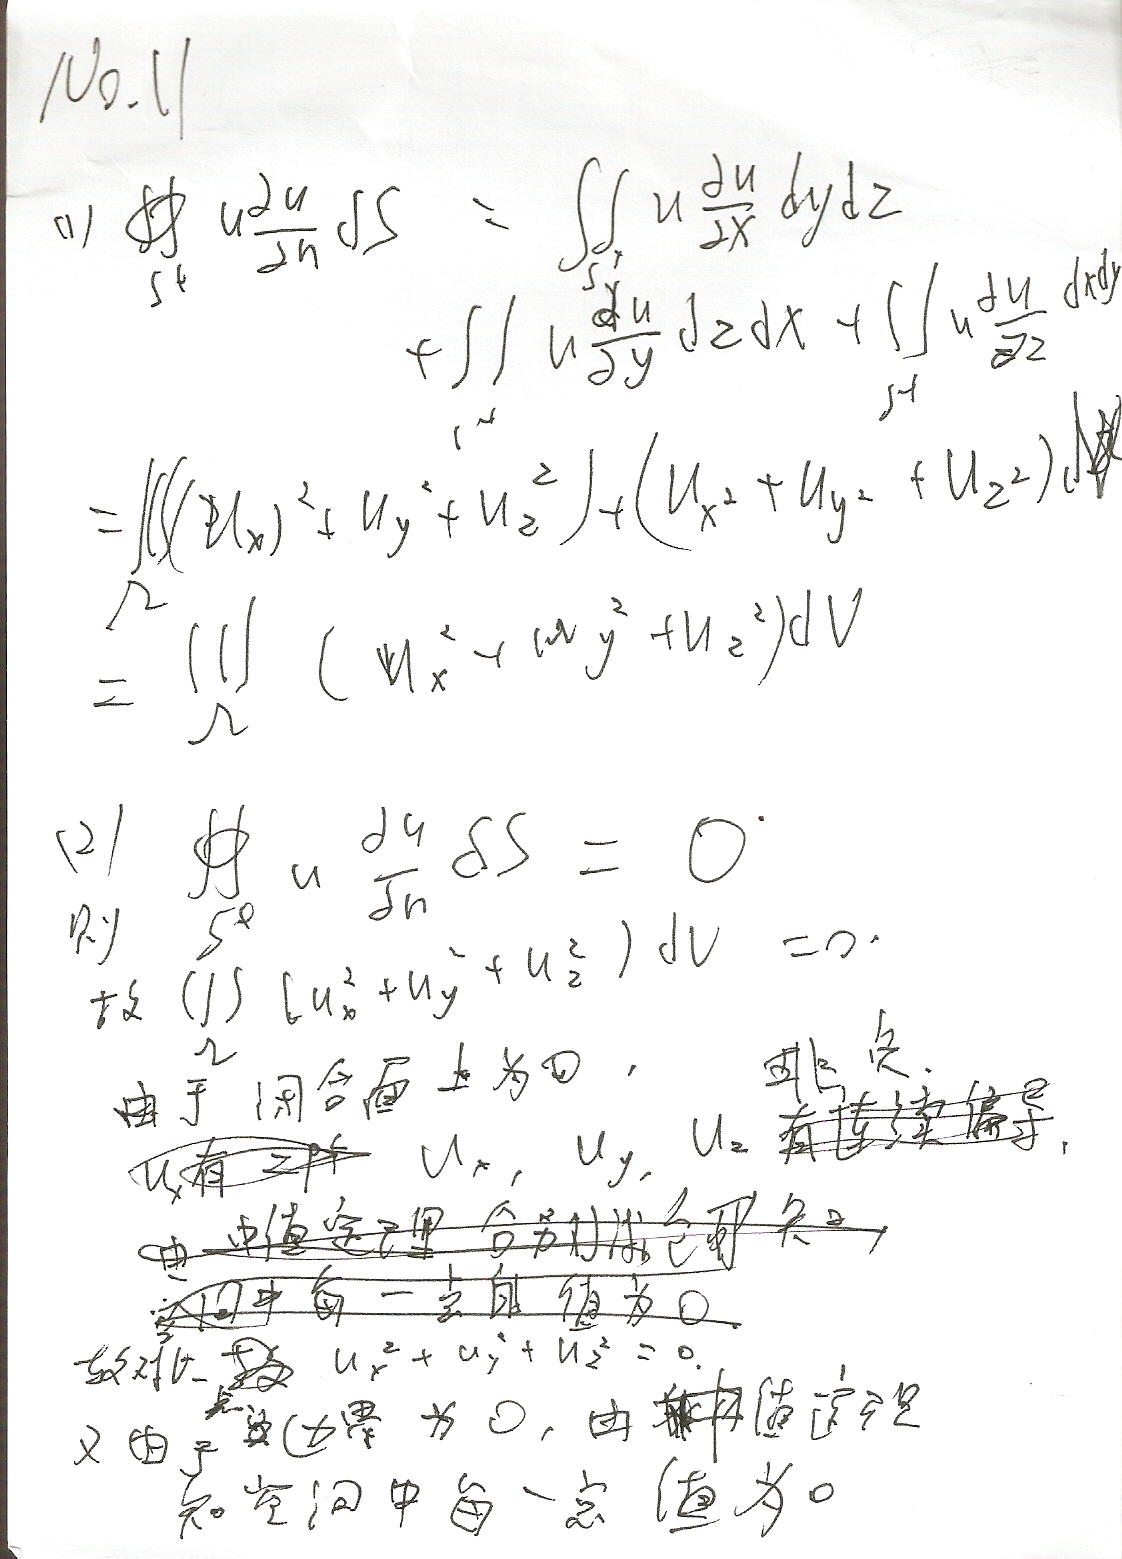 No.11
(1) ∯_{S+} u ∂u/∂n dS = ∬_{S+} u ∂u/∂x dydz
+ ∬_{S+} u ∂u/∂y dzdx + ∬_{S+} u ∂u/∂z dxdy
= ∭_Ω ((u_x)² + u_y² + u_z²) + (u_{x²} + u_{y²} + u_{z²}) dV
= ∭_Ω (u_x² + u_y² + u_z²) dV
(2) ∯ u ∂u/∂n dS = 0.
则
故 ∭_Ω (u_x² + u_y² + u_z²) dV = 0.
由于闭合面上为0, 非负.
u_x有 u_x, u_y, u_z 有连续偏导,
由中值定理
空间中每一点的值为0
故对 u_x² + u_y² + u_z² = 0.
又由于 边界为0, 由中值定理
知空间中每一点值为0